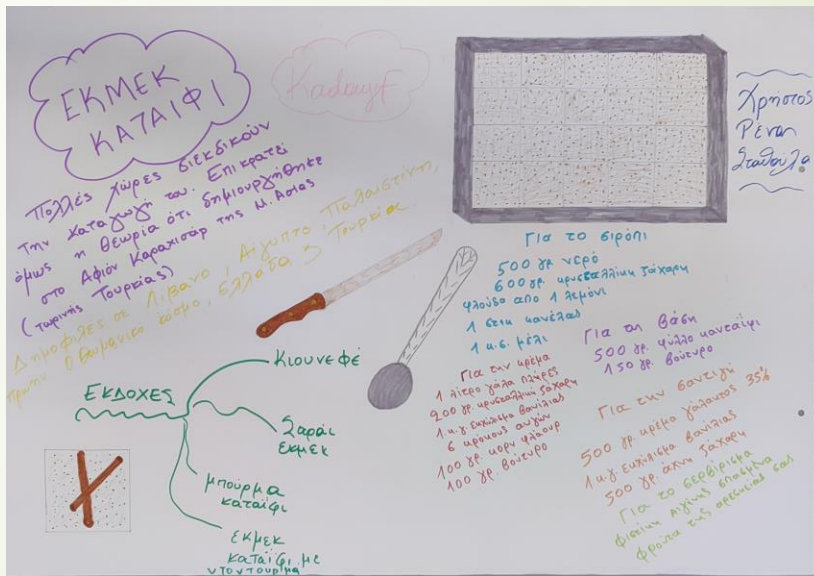 ΕΚΜΕΚ
ΚΑΤΑΙΦΙ
Kadayıf
Χρήστος
Ρένα
Σταθούλα
Πολλές χώρες διεκδικούν
την καταγωγή του. Επικρατεί
όμως η θεωρία ότι δημιουργήθηκε
στο Αφιόν Καραχισάρ της Μ. Ασίας
(τωρινής Τουρκίας)
Δημοφιλές σε Λίβανο, Αίγυπτο, Παλαιστίνη,
πρώην Οθωμανικό κόσμο, Ελλάδα & Τουρκία.
ΕΚΔΟΧΕΣ
Κιουνεφέ
Σαράι
εκμεκ
μπούρμα
καταΐφι
εκμεκ
καταΐφι με
ντοντουρμα
Για το σιρόπι
500 γρ νερό
600 γρ. κρυσταλλικη ζάχαρη
φλούδα από 1 λεμόνι
1 στικ κανέλας
1 κ.σ. μέλι
Για την κρεμα
1 λίτρο γάλα πλήρες
200 γρ. κρυσταλλικη ζάχαρη
1 κ.γ. εκχύλισμα βανίλιας
6 κρόκους αυγών
100 γρ. κορν φλάουρ
100 γρ. βούτυρο
Για τη βάση
500 γρ. φύλλο κανταϊφι
150 γρ. βούτυρο
Για την σαντιγύ
500 γρ. κρεμα γάλακτος 35%
1 κ.γ. εκχύλισμα βανίλιας
500 γρ. άχνη ζάχαρη
Για το σερβίρισμα
φιστίκι Αιγίνης σπασμένα
φρούτα της αρεσκείας σας